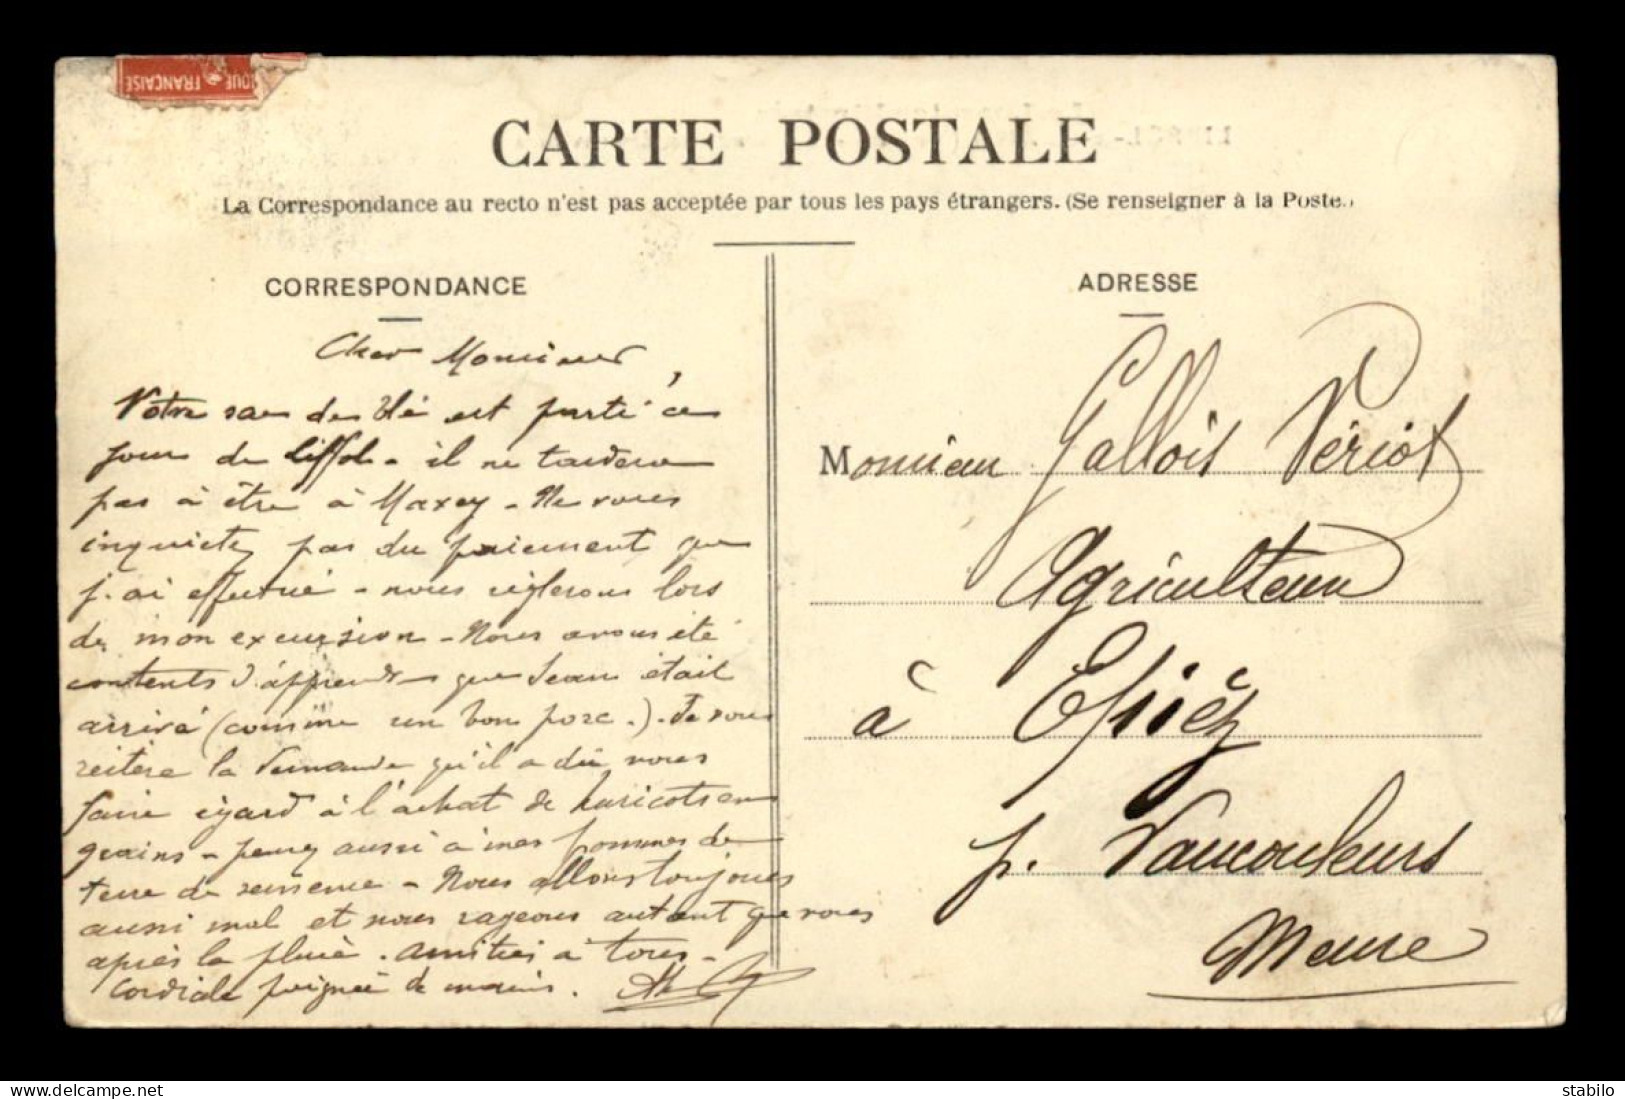 IQUE FRANÇAISE
CARTE POSTALE
La Correspondance au recto n'est pas acceptée par tous les pays étrangers. (Se renseigner à la Poste.)
CORRESPONDANCE
Cher Monsieur,
Votre sac de blé est parti ce
jour de Liffol - il ne tardera
pas à être à Maxey - Ne vous
inquietez pas du paiement que
j'ai effectué - nous règlerons lors
de mon excursion - Nous avons été
contents d'apprendre que Jean était
arrivé (comme un bon porc.). Je vous
reitère la demande qu'il a dû vous
faire égard à l'achat de haricots en
grains - pensez aussi à mes pommes de
terre de semence - Nous allons toujours
aussi mal et nous rageons autant que vous
après la pluie. Amitiés à tous -
Cordiale poignée de mains.
ADRESSE
Monsieur Gallois Périot
Agriculteur
à Epiez
p. Vaucouleurs
Meuse
stabilo